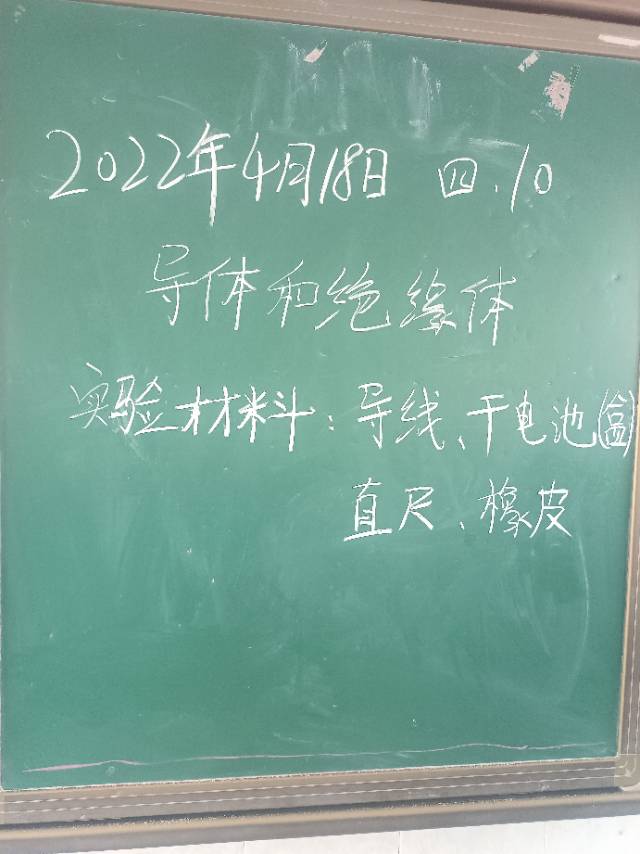 2022年4月18日 四.10
导体和绝缘体
实验材料：导线、干电池(盒)
直尺、橡皮